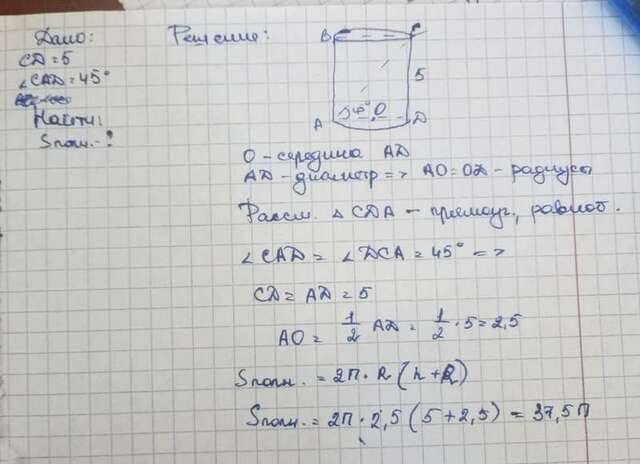 Дано:
CD = 5
∠CAD = 45°
Найти:
Sполн. - ?
Решение:
B C
5
45° O
A D
O - середина AD
AD - диаметр => AO = OD - радиусы
Рассм. △ CDA - прямоуг., равноб.
∠CAD = ∠DCA = 45° =>
CD = AD = 5
AO = 1/2 AD = 1/2 · 5 = 2,5
Sполн. = 2П · R (h + R)
Sполн. = 2П · 2,5 (5 + 2,5) = 37,5П